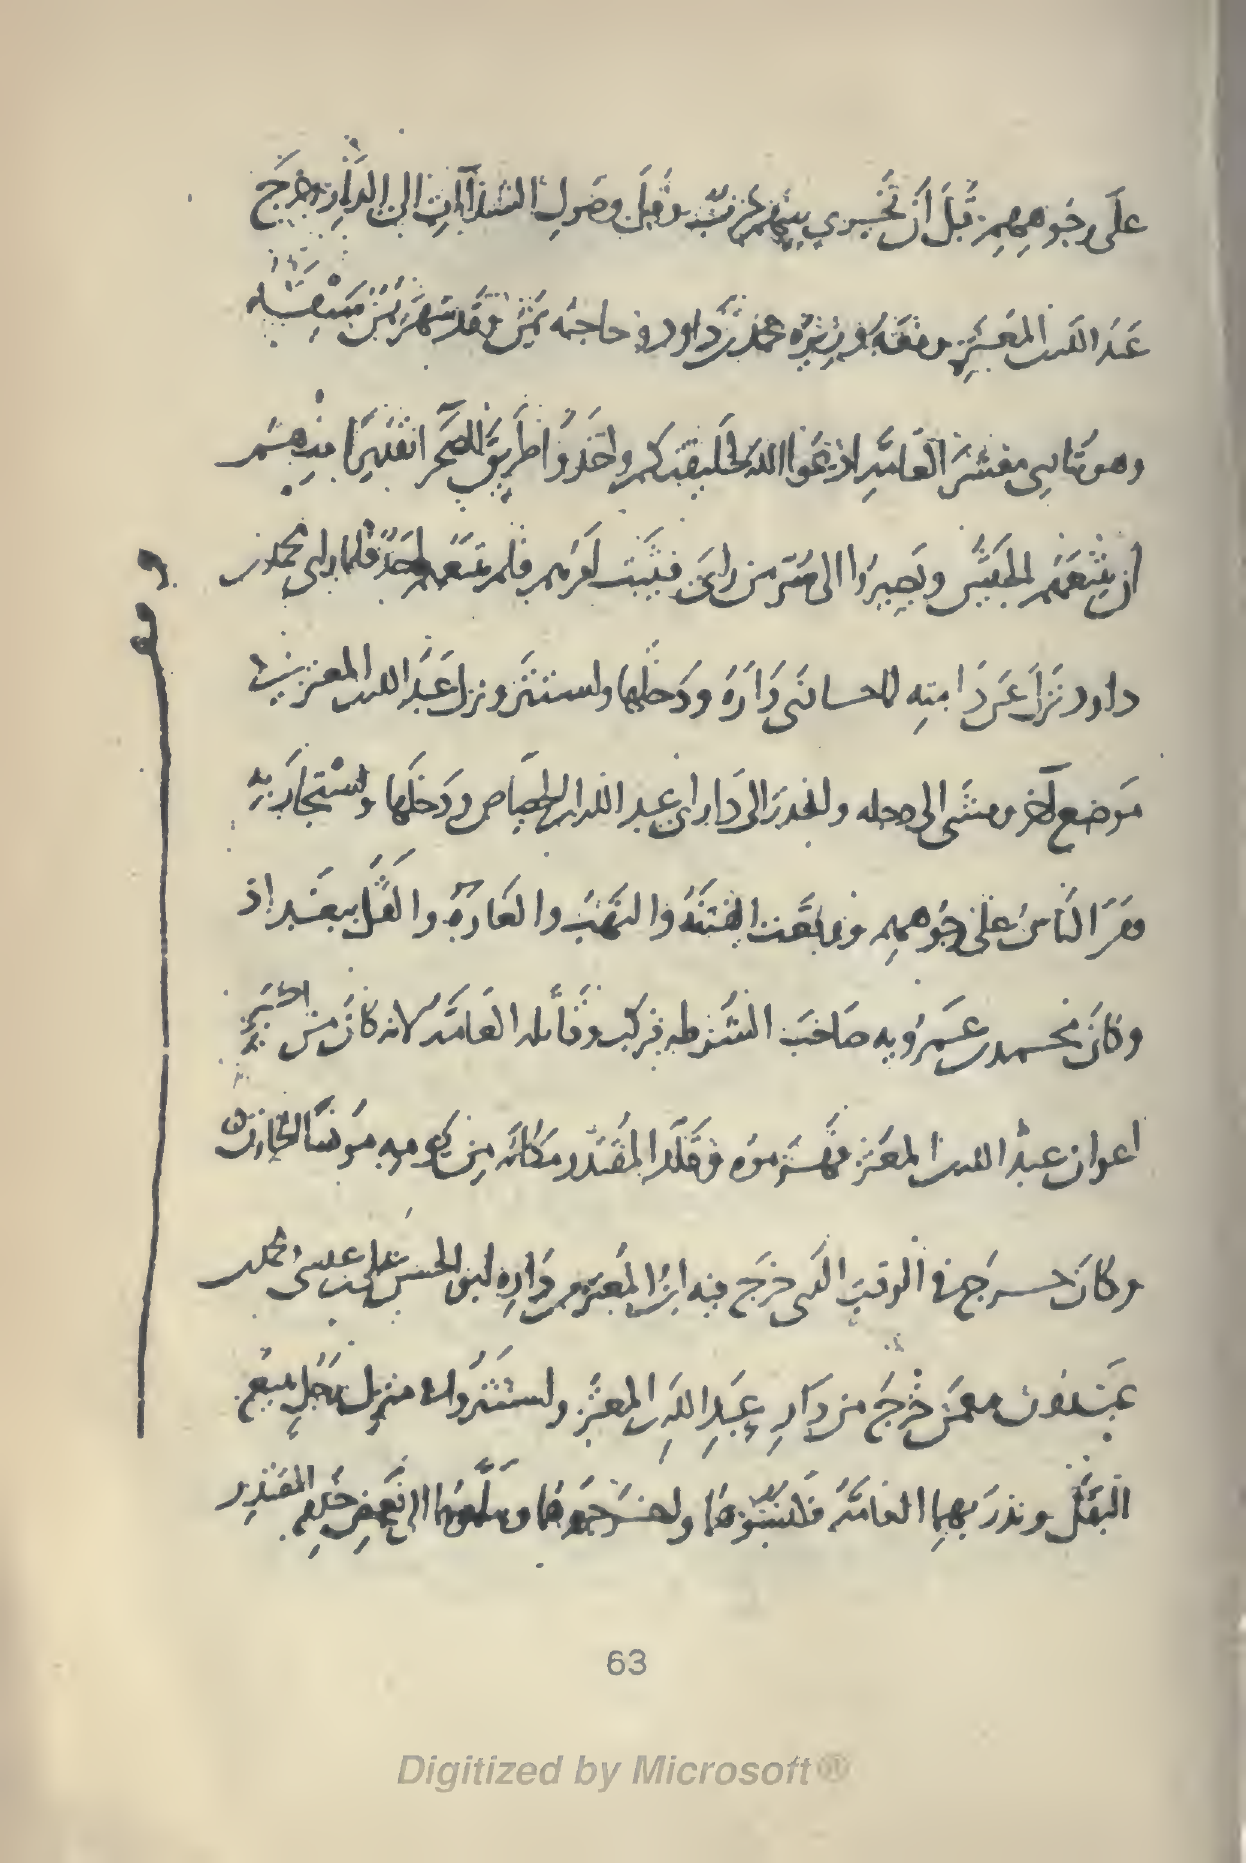 على وجوههم قبل أن تجري بينهم حرب وقبل وصول الشذاآت الى الدار وخرج
عبد الله بن المعتز ومعه وزيره محمد بن داود و حاجبه يمن وقد شهر يمن سيفه
وهو ينادى معشر العامه ادعوا الله لخليفتكم واخذوا طريق الصحرا تقديرا منهم
ان يتبعهم الجيش ويصيروا الى سر من راى فيثبت امرهم فلم يتبعهم احد فلما راى محمد بن
داود نزل عن دابته لما حاذى داره ودخلها واستتر ونزل عبد الله بن المعتز في
موضع آخر ومشى الى دجله وانحدر الى دار ابى عبد الله بن الجصاص ودخلها واستجار به
وفر الناس على وجوههم ووقعت الفتنه والنهب والغارة والقتل ببغداد
وكان محمد بن عمرويه صاحب الشرطه فركب وقاتله العامه لانه كان من اكبر
اعوان عبد الله بن المعتز فهزموه وقلد المقتدر مكانه من يومه مونسا الخازن
وكان خرج في الوقت الذى خرج فيه ابن المعتز من داره ابو الحسن على بن عيسى ومحمد بن
عبدون ممن خرج من دار عبد الله بن المعتز واستتروا في منزل رجل يبيع
البقل ونذر بهما العامه فكبسوهما واخرجوهما وسلموهما الى بعض خدم المقتدر
63
Digitized by Microsoft®